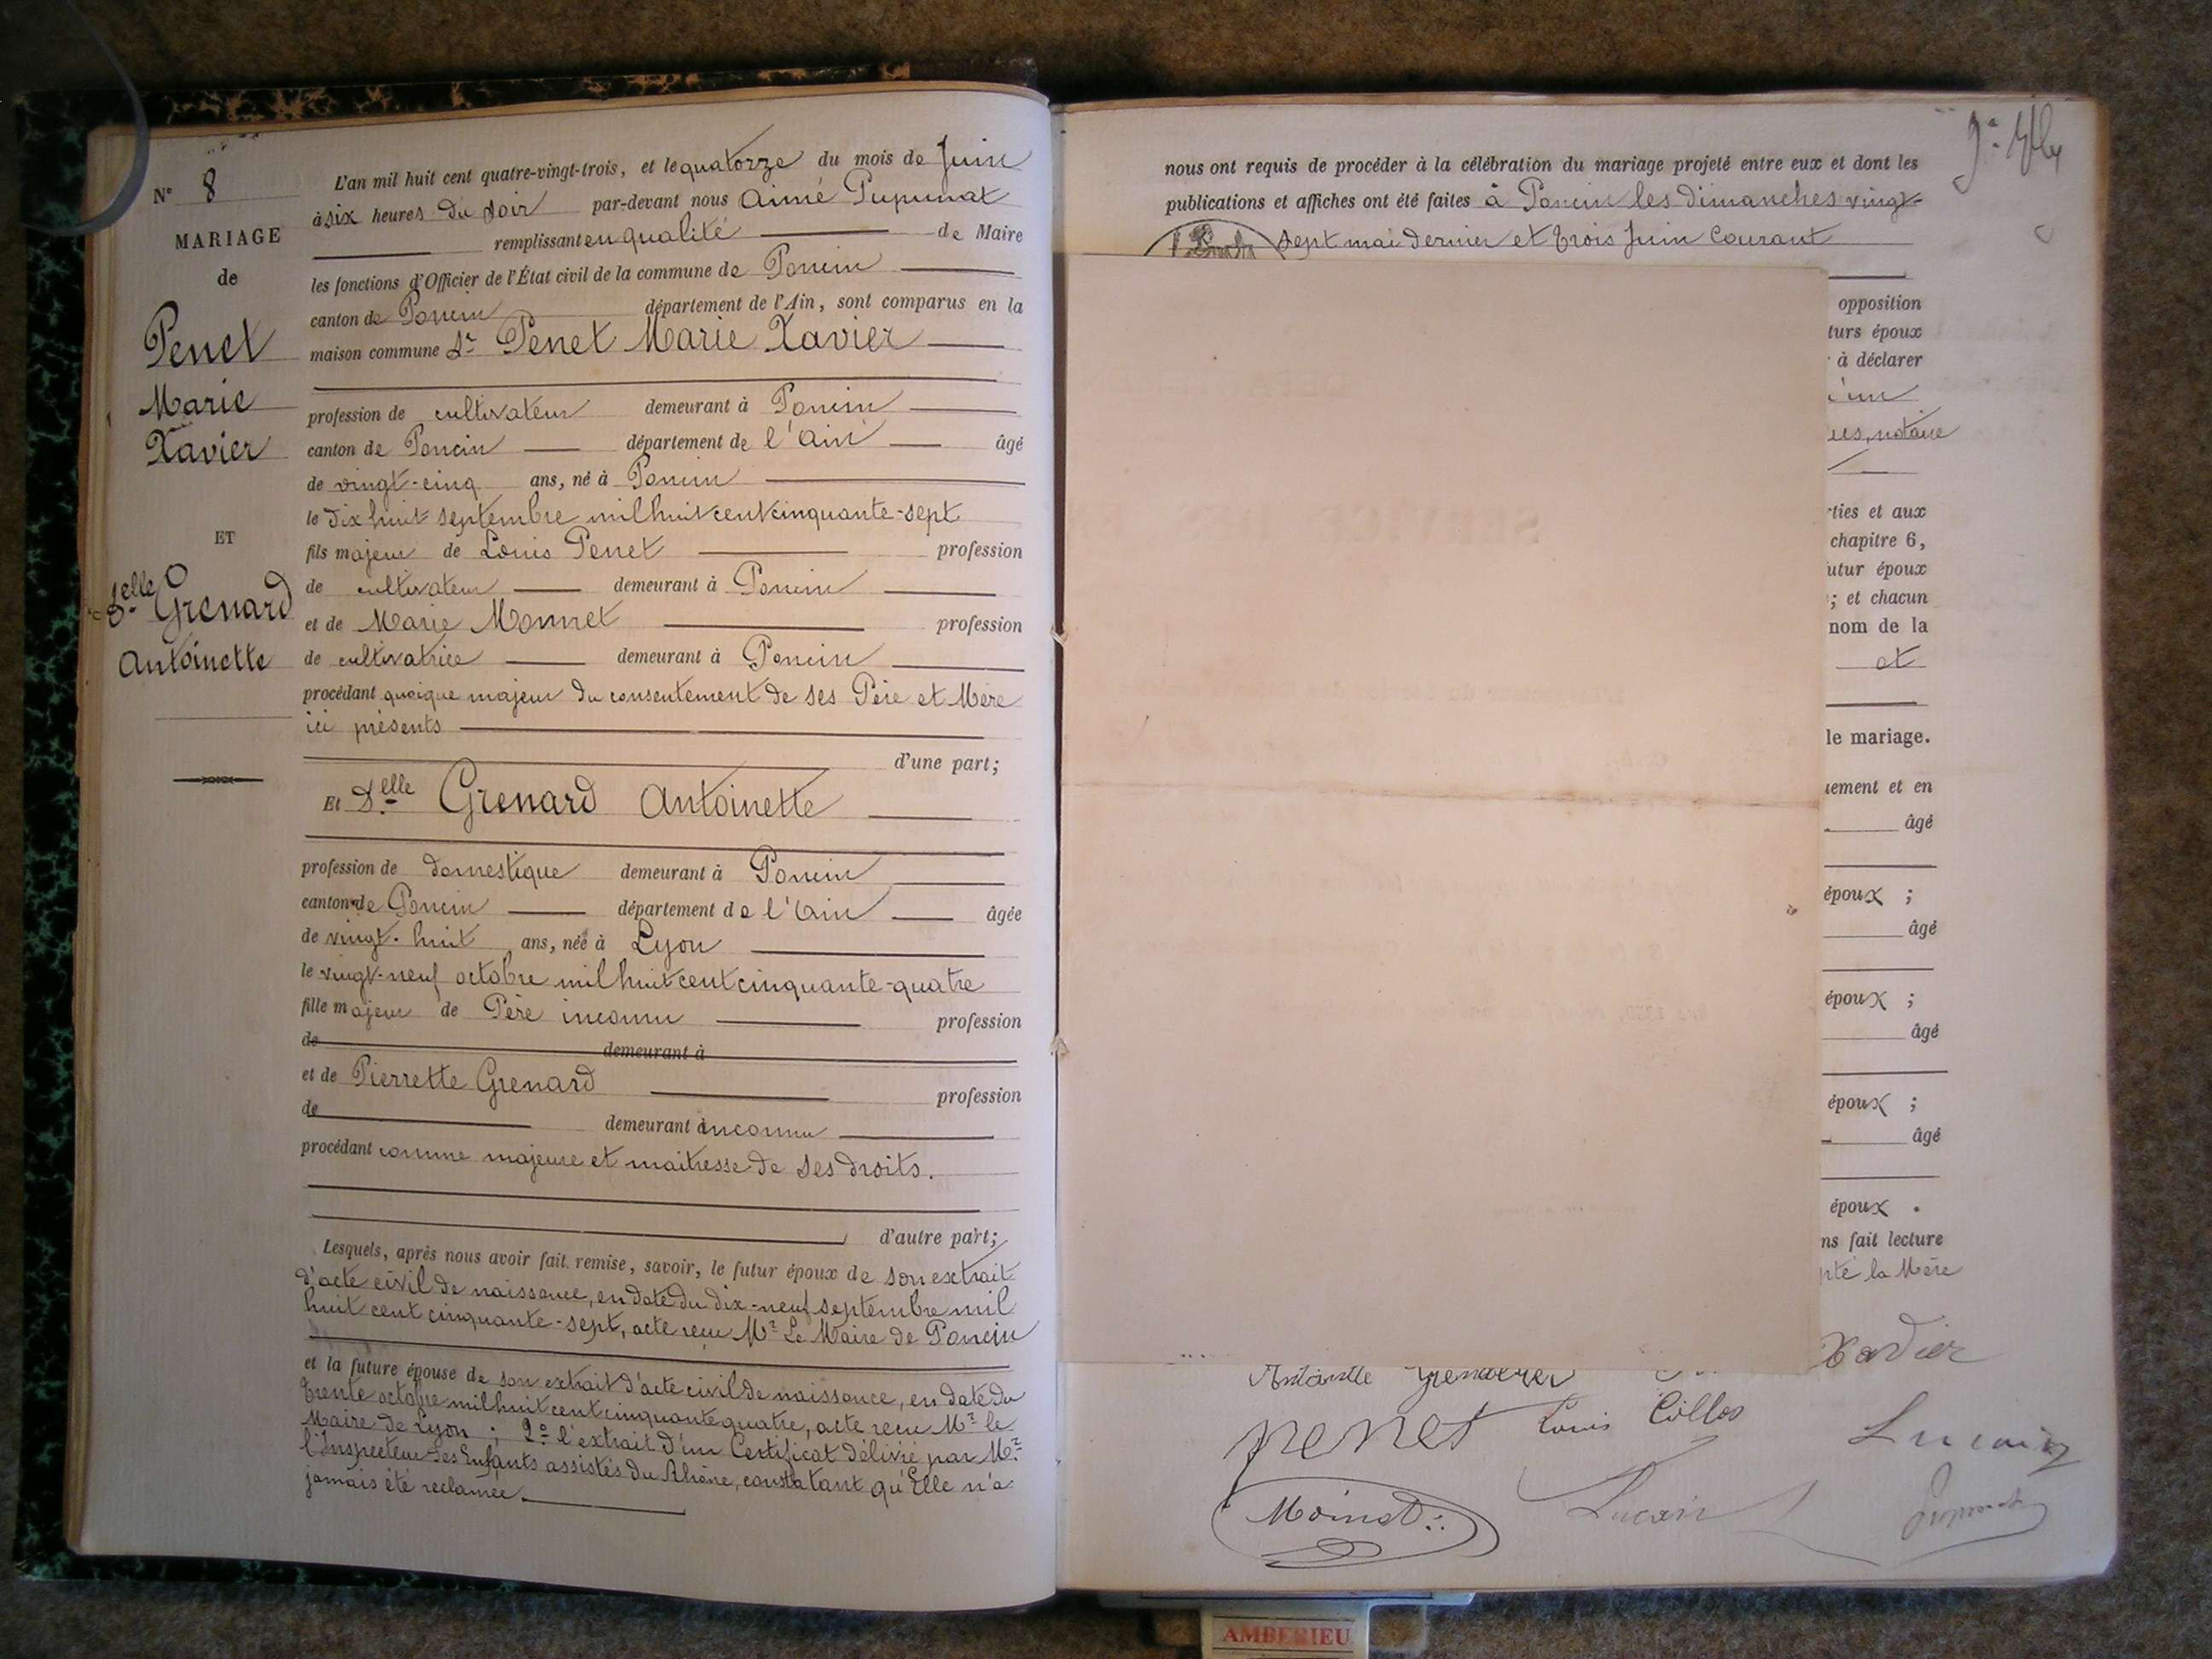 N° 8
MARIAGE
de
Penet
Marie
Xavier
ET
Delle Grenard
Antoinette
L'an mil huit cent quatre-vingt-trois, et le quatorze du mois de Juin
à six heures du soir par-devant nous Aimé Pupunat
remplissant en qualité de Maire
les fonctions d'Officier de l'État civil de la commune de Poncin
canton de Poncin département de l'Ain, sont comparus en la
maison commune Sr Penet Marie Xavier
profession de cultivateur demeurant à Poncin
canton de Poncin département de l'Ain âgé
de vingt-cinq ans, né à Poncin
le dix huit septembre mil huit cent cinquante-sept
fils majeur de Louis Penet profession
de cultivateur demeurant à Poncin
et de Marie Monnet profession
de cultivatrice demeurant à Poncin
procédant quoique majeur du consentement de ses Père et Mère
ici présents
d'une part;
Et Delle Grenard Antoinette
profession de domestique demeurant à Poncin
canton de Poncin département de l'Ain âgée
de vingt-huit ans, née à Lyon
le vingt-neuf octobre mil huit cent cinquante-quatre
fille majeur de Père inconnu profession
de demeurant à
et de Pierrette Grenard profession
de demeurant à inconnu
procédant comme majeure et maitresse de ses droits.
d'autre part;
Lesquels, après nous avoir fait remise, savoir, le futur époux de son extrait
d'acte civil de naissance, en date du dix-neuf septembre mil
huit cent cinquante-sept, acte reçu Mr Le Maire de Poncin
et la future épouse de son extrait d'acte civil de naissance, en date du
trente octobre mil huit cent cinquante quatre, acte reçu Mr le
Maire de Lyon ; 2° l'extrait d'un Certificat délivré par Mr
l'Inspecteur des Enfants assistés du Rhône, constatant qu'Elle n'a
jamais été réclamée.
nous ont requis de procéder à la célébration du mariage projeté entre eux et dont les
publications et affiches ont été faites à Poncin les dimanches vingt-
sept mai dernier et trois Juin Courant
opposition
turs époux
à déclarer
un
notaire
ties et aux
chapitre 6,
utur époux
; et chacun
nom de la
et
le mariage.
uement et en
âgé
époux ;
âgé
époux ;
âgé
époux ;
âgé
époux .
ns fait lecture
la Mère
Xavier
Antoinette
penet Louis Collos
Moinet
Lucain
AMBERIEU